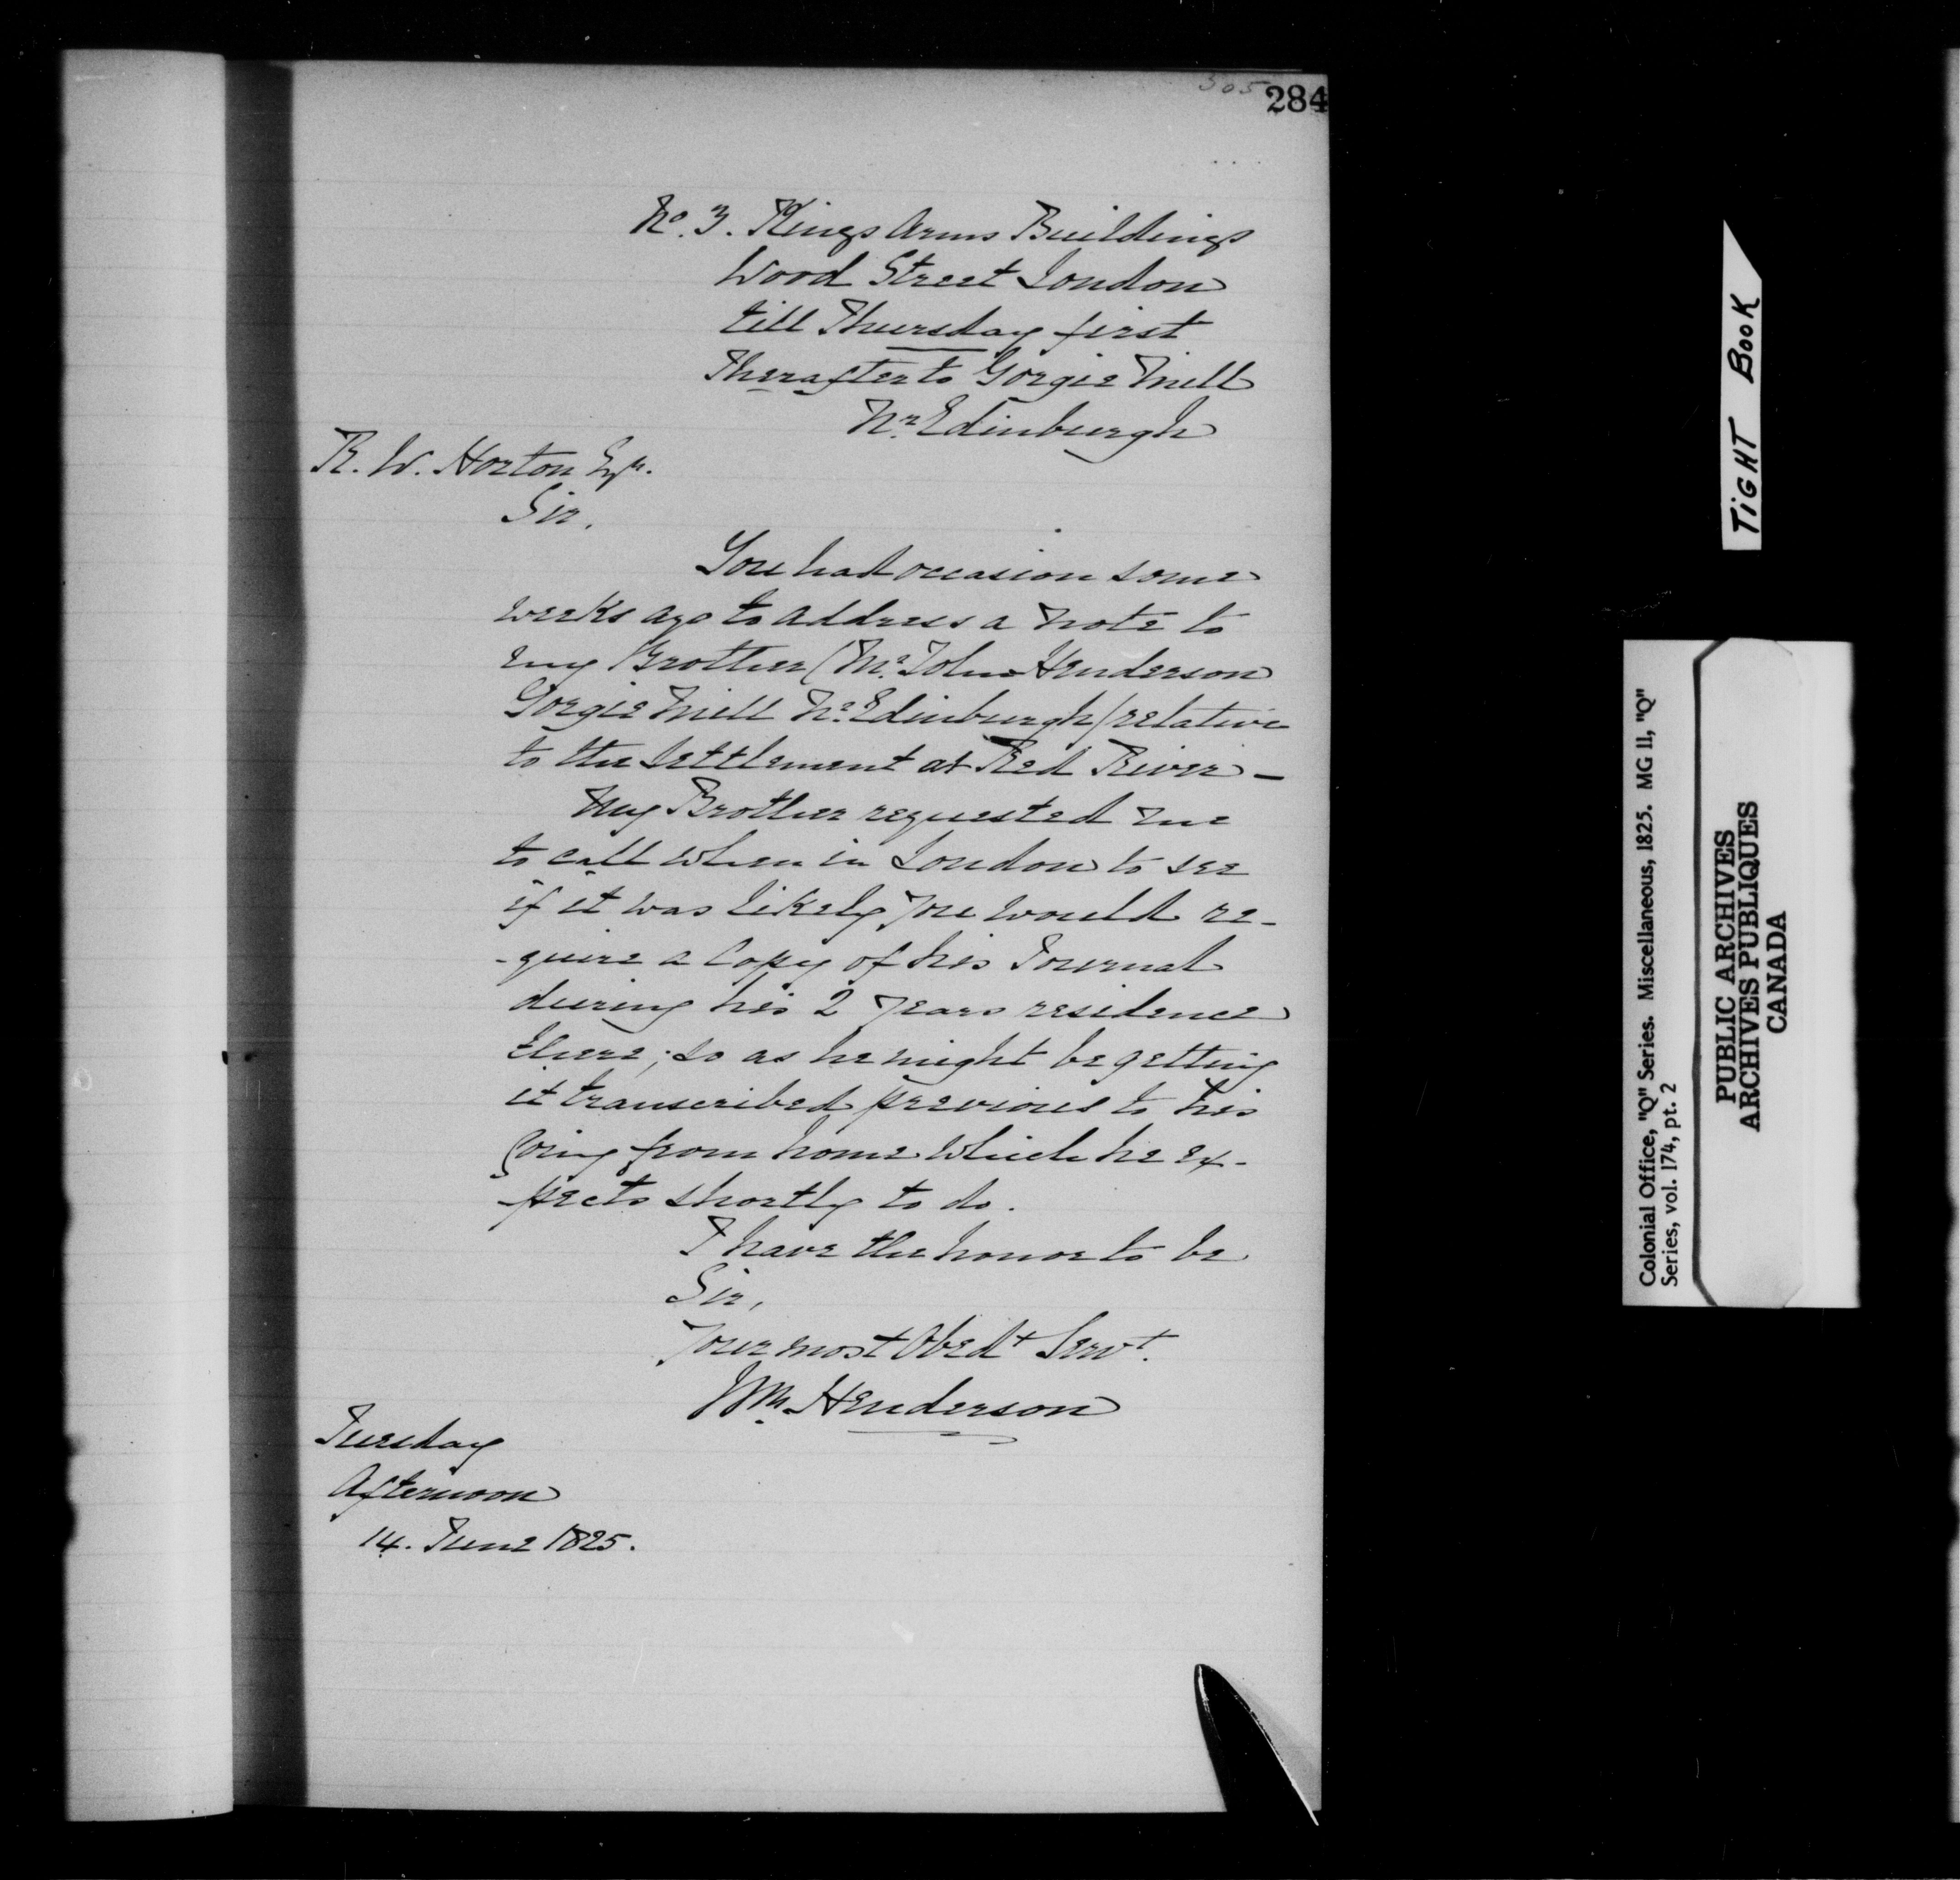 305 284
No. 3. Kings Arms Buildings
Wood Street London
till Thursday first
Therafter to Gorgie Mill
Nr. Edinburgh
R. W. Horton Esqr.
Sir,
You had occasion some
weeks ago to address a note to
my Brother (Mr. John Henderson
Gorgie Mill Nr. Edinburgh) relative
to the Settlement at Red River –
My Brother requested me
to call when in London to see
if it was likely you would re-
-quire a Copy of his Journal
during his 2 years residence
there; so as he might be getting
it transcribed previous to his
going from home which he ex-
-pects shortly to do.
I have the honor to be
Sir,
Your most Obedt Servt.
Wm. Henderson
Tuesday
Afternoon
14. June 1825.
TIGHT BOOK
Colonial Office, "Q" Series. Miscellaneous, 1825. MG 11, "Q"
Series, vol. 174, pt. 2
PUBLIC ARCHIVES
ARCHIVES PUBLIQUES
CANADA